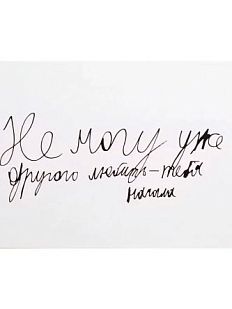 Не могу уже
другого любить-тебя
нагала